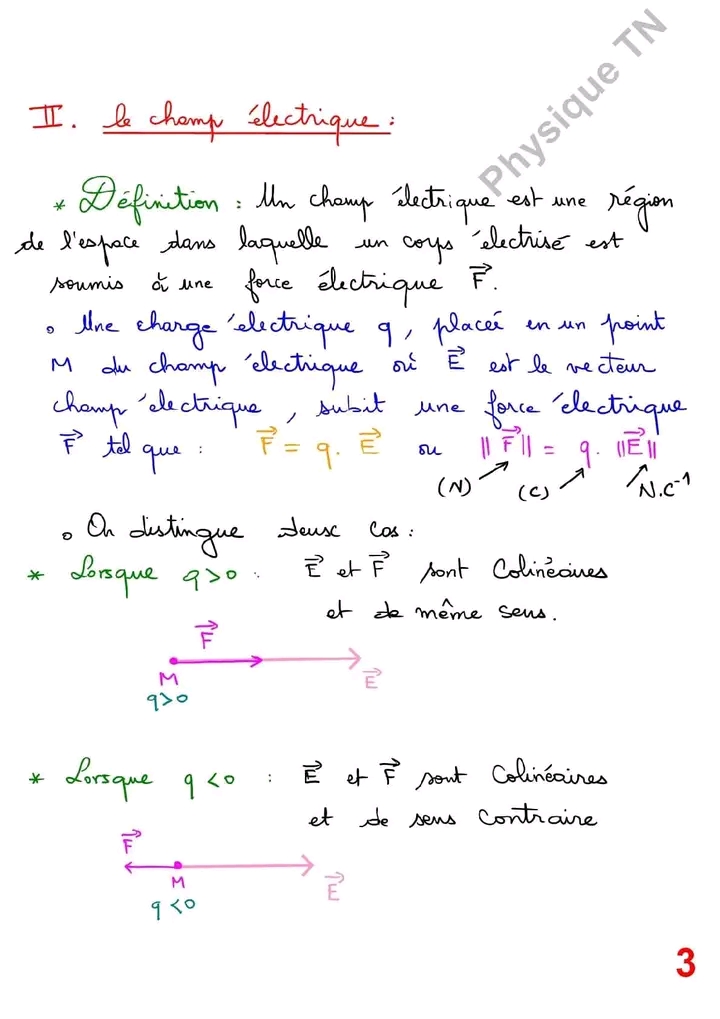 Physique TN
II. le champ électrique :
* Définition : Un champ électrique est une région
de l'espace dans laquelle un corps électrisé est
soumis à une force électrique F⃗.
∘ Une charge électrique q, placée en un point
M du champ électrique où E⃗ est le vecteur
champ électrique, subit une force électrique
F⃗ tel que : F⃗ = q. E⃗ ou ||F⃗|| = q. ||E⃗||
(N) (C) N.C⁻¹
∘ On distingue deux cas :
* Lorsque q>0 : E⃗ et F⃗ sont Colinéaires
et de même sens.
F⃗
M E⃗
q>0
* Lorsque q<0 : E⃗ et F⃗ sont Colinéaires
et de sens contraire
F⃗
M E⃗
q<0
3